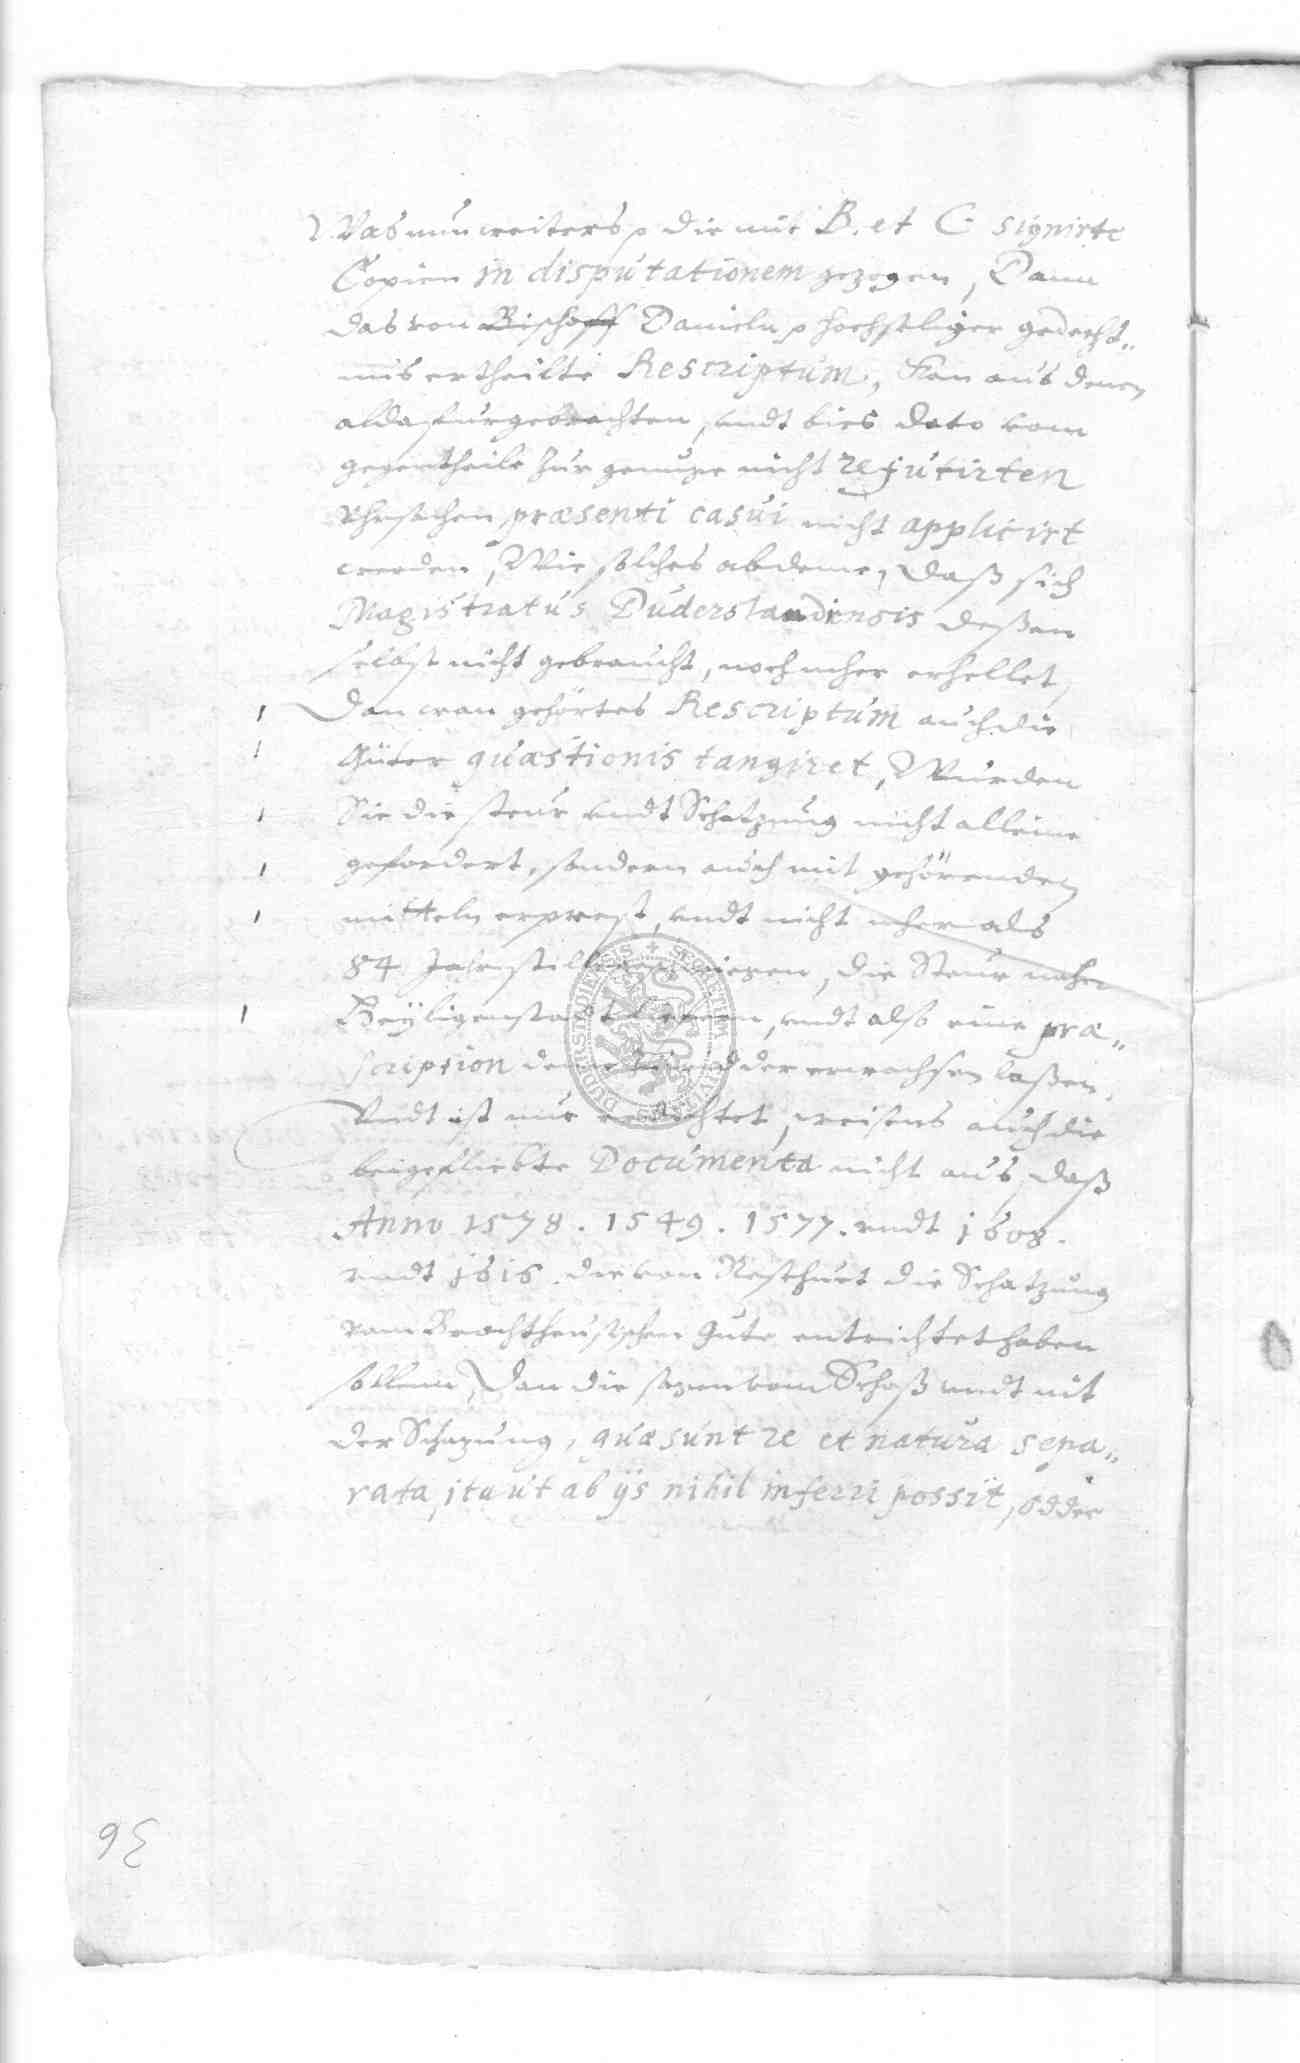 Was nun weiters die mit B. et C signirte
Copien in disputationem gezogen, Dann
das von Bischoff Danieln hochseliger gedecht„
nus ertheilte Rescriptum, kan aus denen
alda furgebrachten, undt bies dato vom
gegentheile zur genuge nicht refutirten
Uhrsachen præsenti casui nicht applicirt
werden, Wie solches abdeme, daß sich
Magistratus Duderstandensis deßen
selbst nicht gebraucht, noch mher erhellet,
Dan wan gehörtes Rescriptum auch die
Güter quæstionis tangiret, Wurden
Sie die steur undt Schatzung nicht alleine
gefordert, sondern auch mit gehörenden
mitteln erprest, undt nicht mher als
84 Jahr still, die Steur naher
Heyligenstadt, undt also eine præ„
scription erwachsen laßen,
Undt ist nur erdichtet, weisens auch die
beigefliebte Documenta nicht aus, daß
Anno 1578. 1549. 1577. undt 1608.
undt 1616. die von Westhuet die Schatzung
vom Gute entrichtet haben
sollenn, Dan die sagen vom Schoß undt nit
der Schazung, quæ sunt re et natura sepa„
rata, ita ut ab ijs nihil inferri possit, odder
DUDERSTADIENSIS SECRETUM CIVITATIS